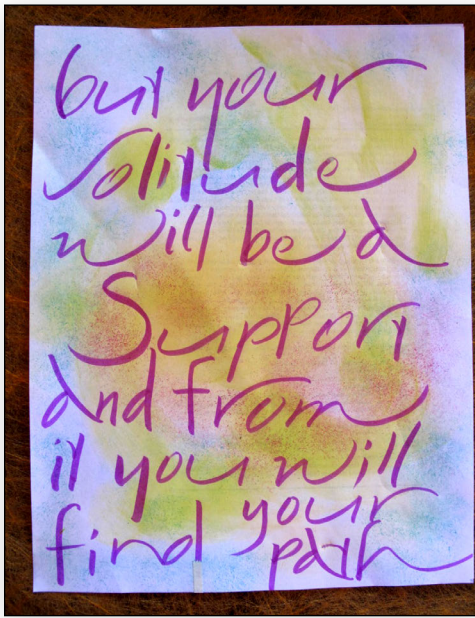 but your
solitude
will be a
Support
and from
it you will
find your
path